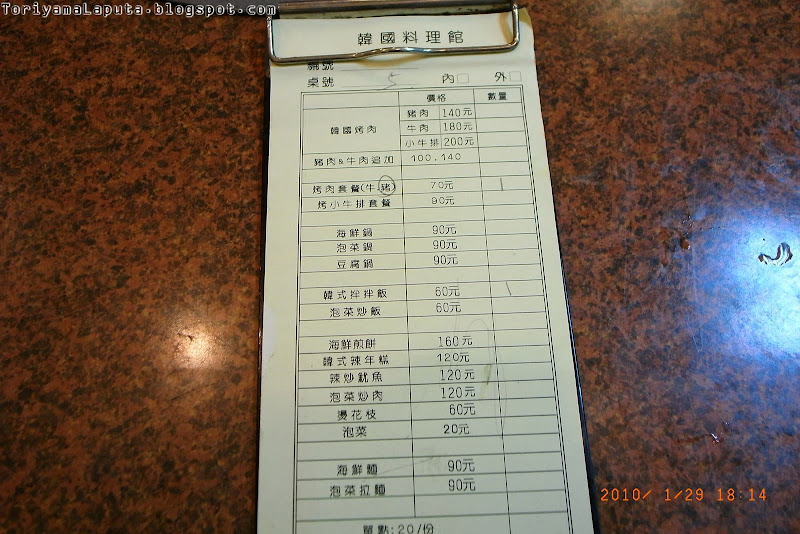 ToriyamaLaputa.blogspot.com
韓國料理館
桌號 5 內□ 外□
價格 數量
韓國烤肉 豬肉 140元
牛肉 180元
小牛排 200元
豬肉&牛肉追加 100.140
烤肉套餐(牛.豬) 70元 1
烤小牛排套餐 90元
海鮮鍋 90元
泡菜鍋 90元
豆腐鍋 90元
韓式拌拌飯 60元 1
泡菜炒飯 60元
海鮮煎餅 160元
韓式辣年糕 120元
辣炒魷魚 120元
泡菜炒肉 120元
燙花枝 60元
泡菜 20元
海鮮麵 90元
泡菜拉麵 90元
單點:20/份
2010/ 1/29 18:14